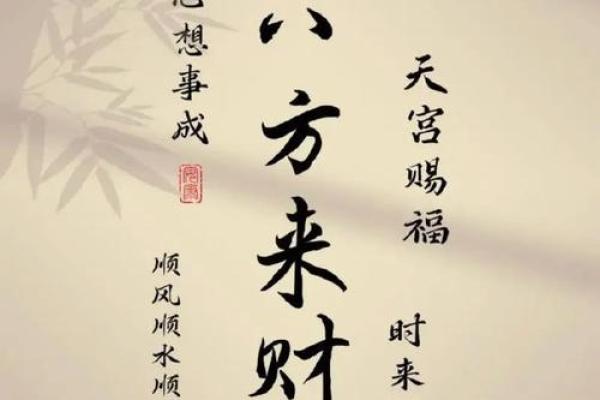 天宫赐福
时来
八方来财
心想事成
顺风顺水顺